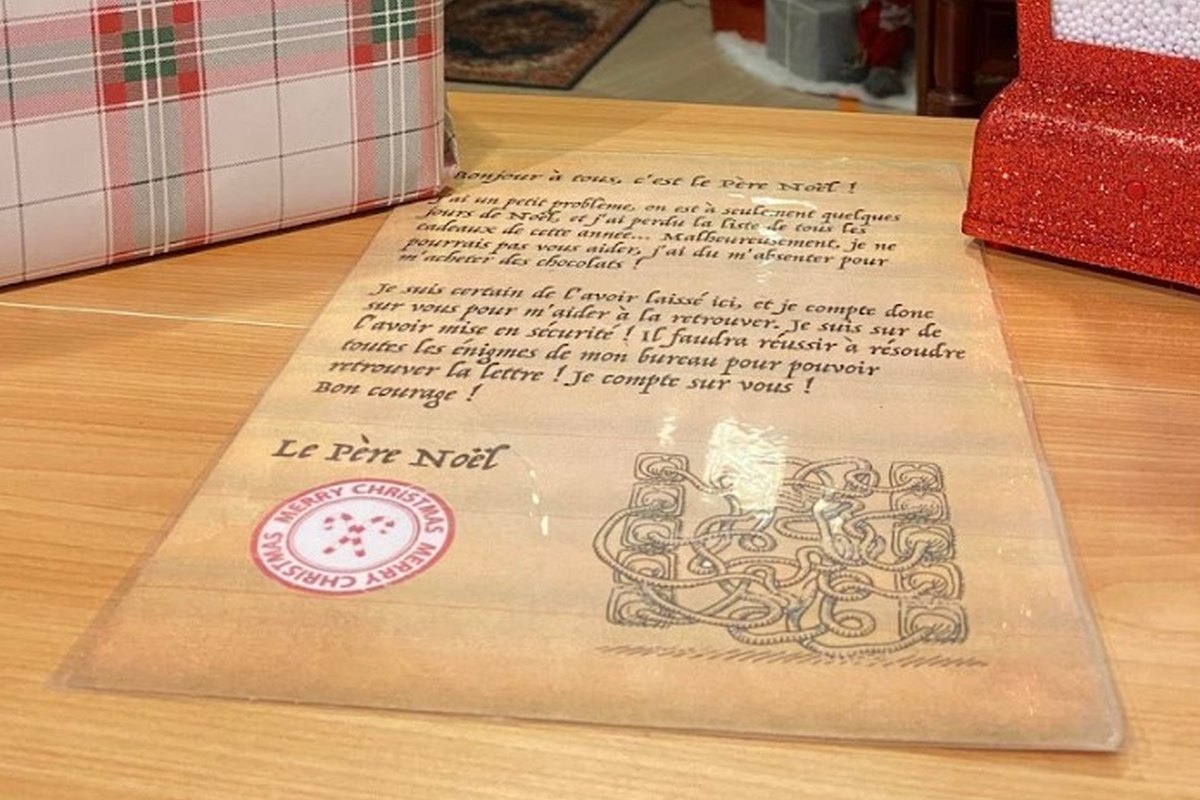 Bonjour à tous, c'est le Père Noël !
J'ai un petit problème, on est à seulement quelques
jours de Noël, et j'ai perdu la liste de tous les
cadeaux de cette année... Malheureusement, je ne
pourrais pas vous aider, j'ai du m'absenter pour
m'acheter des chocolats !
Je suis certain de l'avoir laissé ici, et je compte donc
sur vous pour m'aider à la retrouver. Je suis sur de
l'avoir mise en sécurité ! Il faudra réussir à résoudre
toutes les énigmes de mon bureau pour pouvoir
retrouver la lettre ! Je compte sur vous !
Bon courage !
Le Père Noël
MERRY CHRISTMAS MERRY CHRISTMAS